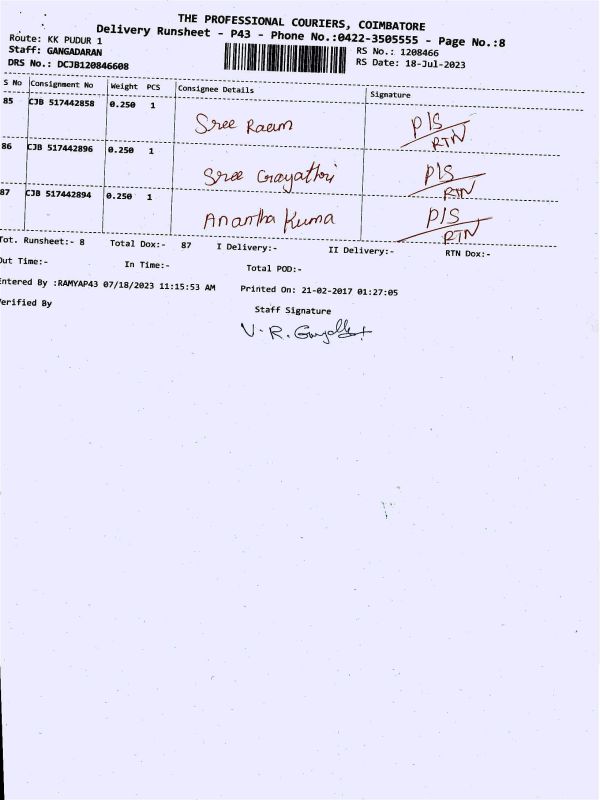 THE PROFESSIONAL COURIERS, COIMBATORE
Delivery Runsheet - P43 - Phone No.:0422-3505555 - Page No.:8
Route: KK PUDUR 1 RS No.: 1208466
Staff: GANGADARAN RS Date: 18-Jul-2023
DRS No.: DCJB120846608
S No Consignment No Weight PCS Consignee Details Signature
85 CJB 517442858 0.250 1 Sree P/S
RTN
86 CJB 517442896 0.250 1 Sree Gayathri P/S
RTN
87 CJB 517442894 0.250 1 Anantha Kuma P/S
RTN
Tot. Runsheet:- 8 Total Dox:- 87 I Delivery:- II Delivery:- RTN Dox:-
Out Time:- In Time:- Total POD:-
Entered By :RAMYAP43 07/18/2023 11:15:53 AM Printed On: 21-02-2017 01:27:05
Verified By Staff Signature
V. R.